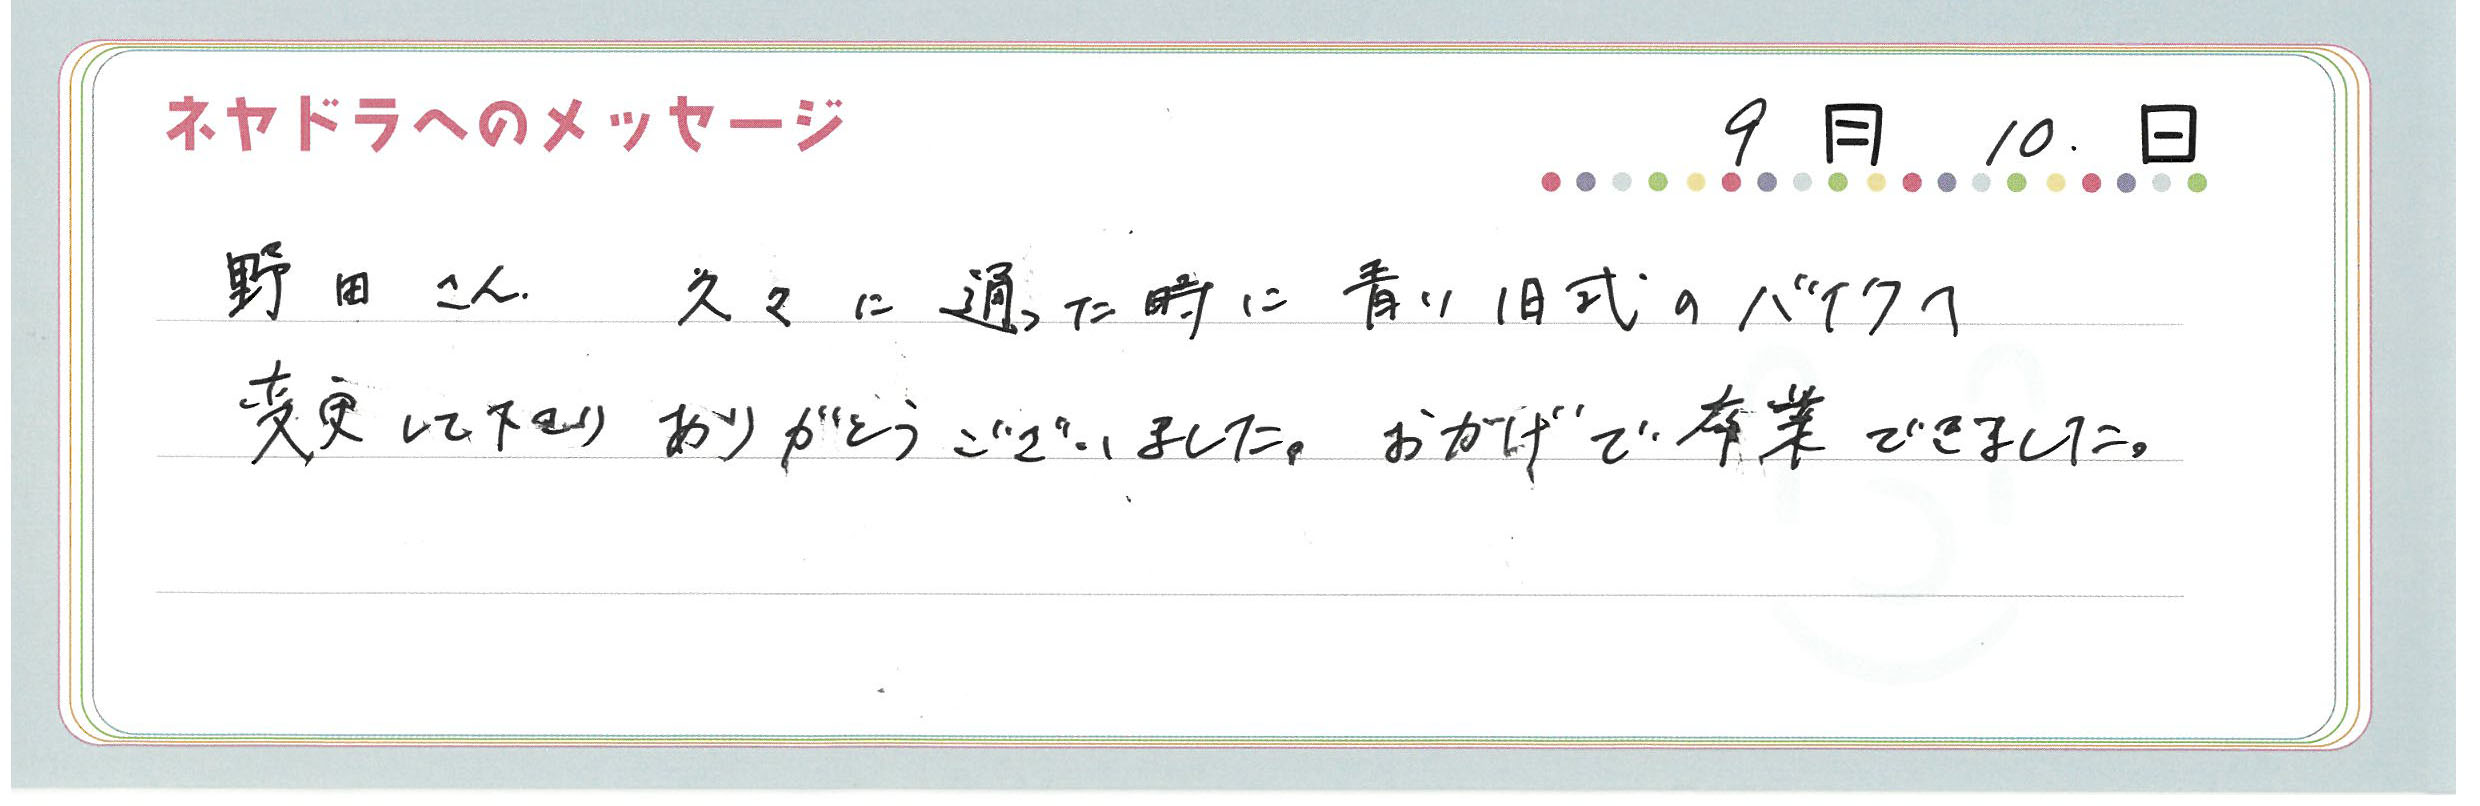 ネヤドラへのメッセージ
9月 10.日
野田さん. 久々に通った時に青い旧式のバイクへ
変更して下さり ありがとうございました。おかげで卒業できました。